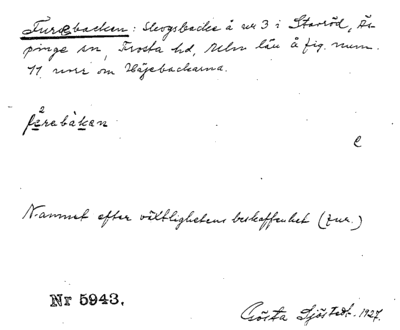 Furebacken: Skogsbacke å nr 3 i Stavröd, Äs-
pinge sn, Frosta hd, relsn län å fig. num.
11 norr om Höjebackarna.
2
fúrabàkan
c
Namnet efter växtlighetens beskaffenhet (fur.)
Nr 5943.
Gösta Sjöstedt. 1927.